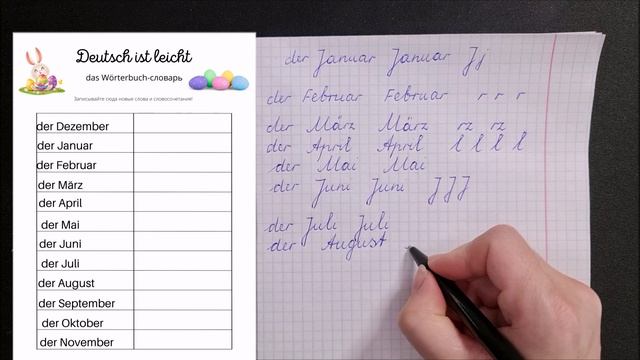 Deutsch ist leicht
das Wörterbuch-словарь
Записывайте сюда новые слова и словосочетания!
der Dezember
der Januar
der Februar
der März
der April
der Mai
der Juni
der Juli
der August
der September
der Oktober
der November
der Januar Januar Jj
der Februar Februar r r r
der März März rz rz
der April April l l l l
der Mai Mai
der Juni Juni J J J
der Juli Juli
der August